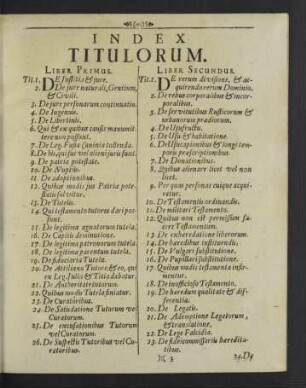 INDEX
TITULORUM.
LIBER PRIMUS.
Tit. 1. DE Justitia & jure.
2. De jure naturali, Gentium,
& Civili.
3. De jure personarum
4. De Ingenuis.
5. De Libertinis.
6. Qui & ex quibus causis manumit
tere non possunt.
7. De Leg. Fusia Caninia tollenda.
8. De his, qui sui vel alieni juris sunt.
9. De patria potestate.
10. De Nuptiis.
11. De adoptionibus.
12. Quibus modis jus Patria pote-
statis solvitur.
13. De Tutelis.
14. Qui testamento tutores dari pos-
sunt.
15. De legitima agnatorum tutela.
16. De Capitis deminutione.
17. De legitima patronorum tutela.
18. De legitima parentum tutela.
19. De fiduciaria Tutela.
20. De Attiliano Tutore, & eo, qui
ex Leg. Julia & Titia dabatur.
21. De Authoritate tutorum.
22. Quibus modis Tutela finiatur.
23. De Curatoribus.
24. De Satisdatione Tutorum vel
Curatorum.
25. De excusationibus Tutorum
vel Curatorum.
26. De Suspectis Tutoribus vel Cu-
ratoribus.
LIBER SECUNDUS.
Tit. 1. DE rerum divisione, & ac-
quirendo rerum Dominio.
2. De rebus corporalibus & incor-
poralibus.
3. De servitutibus Rusticorum &
urbanorum prædiorum.
4. De Usufructu.
5. De Usu & habitatione.
6. De Usucapionibus & longi tem-
poris præscriptionibus.
7. De Donationibus.
8. Quibus alienare licet vel non
licet.
9. Per quas personas cuique acqui-
ritur.
10. De Testamentis ordinandis.
11. De militari Testamento.
12. Quibus non est permissum fa-
cere Testamentum.
13. De exheredatione liberorum.
14. De hæredibus instituendis.
15. De Vulgari substitutione.
16. De Pupillari substitutione.
17. Quibus modis testamenta infir-
mentur.
18. De inofficioso Testamento.
19. De hæredum qualitate & dif-
ferentia.
20. De Legatis.
21. De Ademptione Legatorum,
& translatione.
22. De Lege Falcidia.
23. De fideicommissariis heredita-
tibus.
24. De